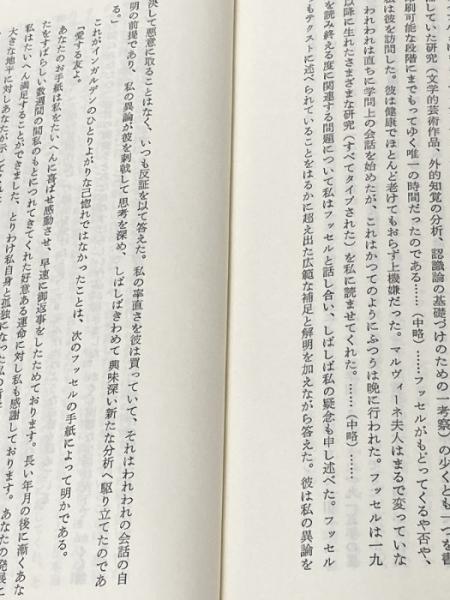 していた研究(文学的芸術作品、外的知覚の分析、認識論の基礎づけのための一考察)の少くとも一つを書
刷可能な段階にまでもってゆく唯一の時間だったのである……(中略)……フッセルがもどってくるや否や、
は彼を訪問した。彼は健康でほとんど老けてもおらず上機嫌だった。マルヴィーネ夫人はまるで変っていな
われわれは直ちに学問上の会話を始めたが、これはかつてのようにふつうは晩に行われた。フッセルは一九
以降に生れたさまざまな研究(すべてタイプされた)を私に読ませてくれた。……(中略)……
を読み終える度に関連する問題について私はフッセルと話し合い、しばしば私の疑念も申し述べた。フッセル
もテクストに述べられていることをはるかに超え出た広範な補足と解明を加えながら答えた。彼は私の異論を
決して悪意に取ることはなく、いつも反証を以て答えた。私の率直さを彼は買っていて、それはわれわれの会話の自
明の前提であり、私の異論が彼を刺戟して思考を深め、しばしばきわめて興味深い新たな分析へ駆り立てたのであ
る。」
これがインガルデンのひとりよがりな己惚れではなかったことは、次のフッセルの手紙によって明かである。
「愛する友よ。
あなたのお手紙は私をたいへんに喜ばせ感動させ、早速に御返事をしたためております。長い年月の後に漸くあな
たをすばらしい数週間の間私のもとにつれてきてくれた好意ある運命に対し私も感謝しております。あなたの発展に
私はたいへん満足することができました、とりわけ私自身と孤独になった私の
大きな地平に対しあなたが